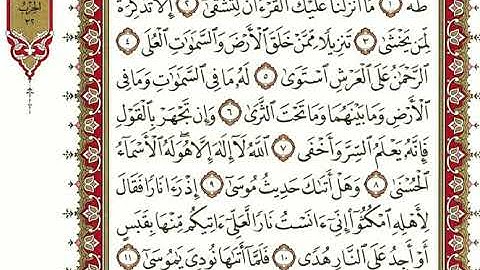 الحزب
٣٢
طه ١ مَا أَنزَلْنَا عَلَيْكَ الْقُرْءَانَ لِتَشْقَىٰ ٢ إِلَّا تَذْكِرَةً
لِّمَن يَخْشَىٰ ٣ تَنزِيلًا مِّمَّنْ خَلَقَ الْأَرْضَ وَالسَّمَٰوَٰتِ الْعُلَى ٤
الرَّحْمَٰنُ عَلَى الْعَرْشِ اسْتَوَىٰ ٥ لَهُ مَا فِي السَّمَٰوَٰتِ وَمَا فِي
الْأَرْضِ وَمَا بَيْنَهُمَا وَمَا تَحْتَ الثَّرَىٰ ٦ وَإِن تَجْهَرْ بِالْقَوْلِ
فَإِنَّهُ يَعْلَمُ السِّرَّ وَأَخْفَى ٧ اللَّهُ لَا إِلَٰهَ إِلَّا هُوَ لَهُ الْأَسْمَاءُ
الْحُسْنَىٰ ٨ وَهَلْ أَتَىٰكَ حَدِيثُ مُوسَىٰ ٩ إِذْ رَءَا نَارًا فَقَالَ
لِأَهْلِهِ امْكُثُوا إِنِّي ءَانَسْتُ نَارًا لَّعَلِّي ءَاتِيكُم مِّنْهَا بِقَبَسٍ
أَوْ أَجِدُ عَلَى النَّارِ هُدًى ١٠ فَلَمَّا أَتَىٰهَا نُودِيَ يَٰمُوسَىٰ ١١